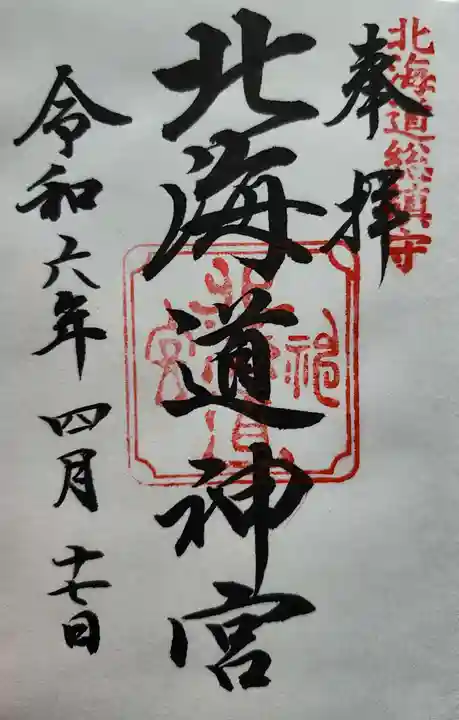 北海道総鎮守
奉拝
北海道神宮
令和六年 四月 十七日